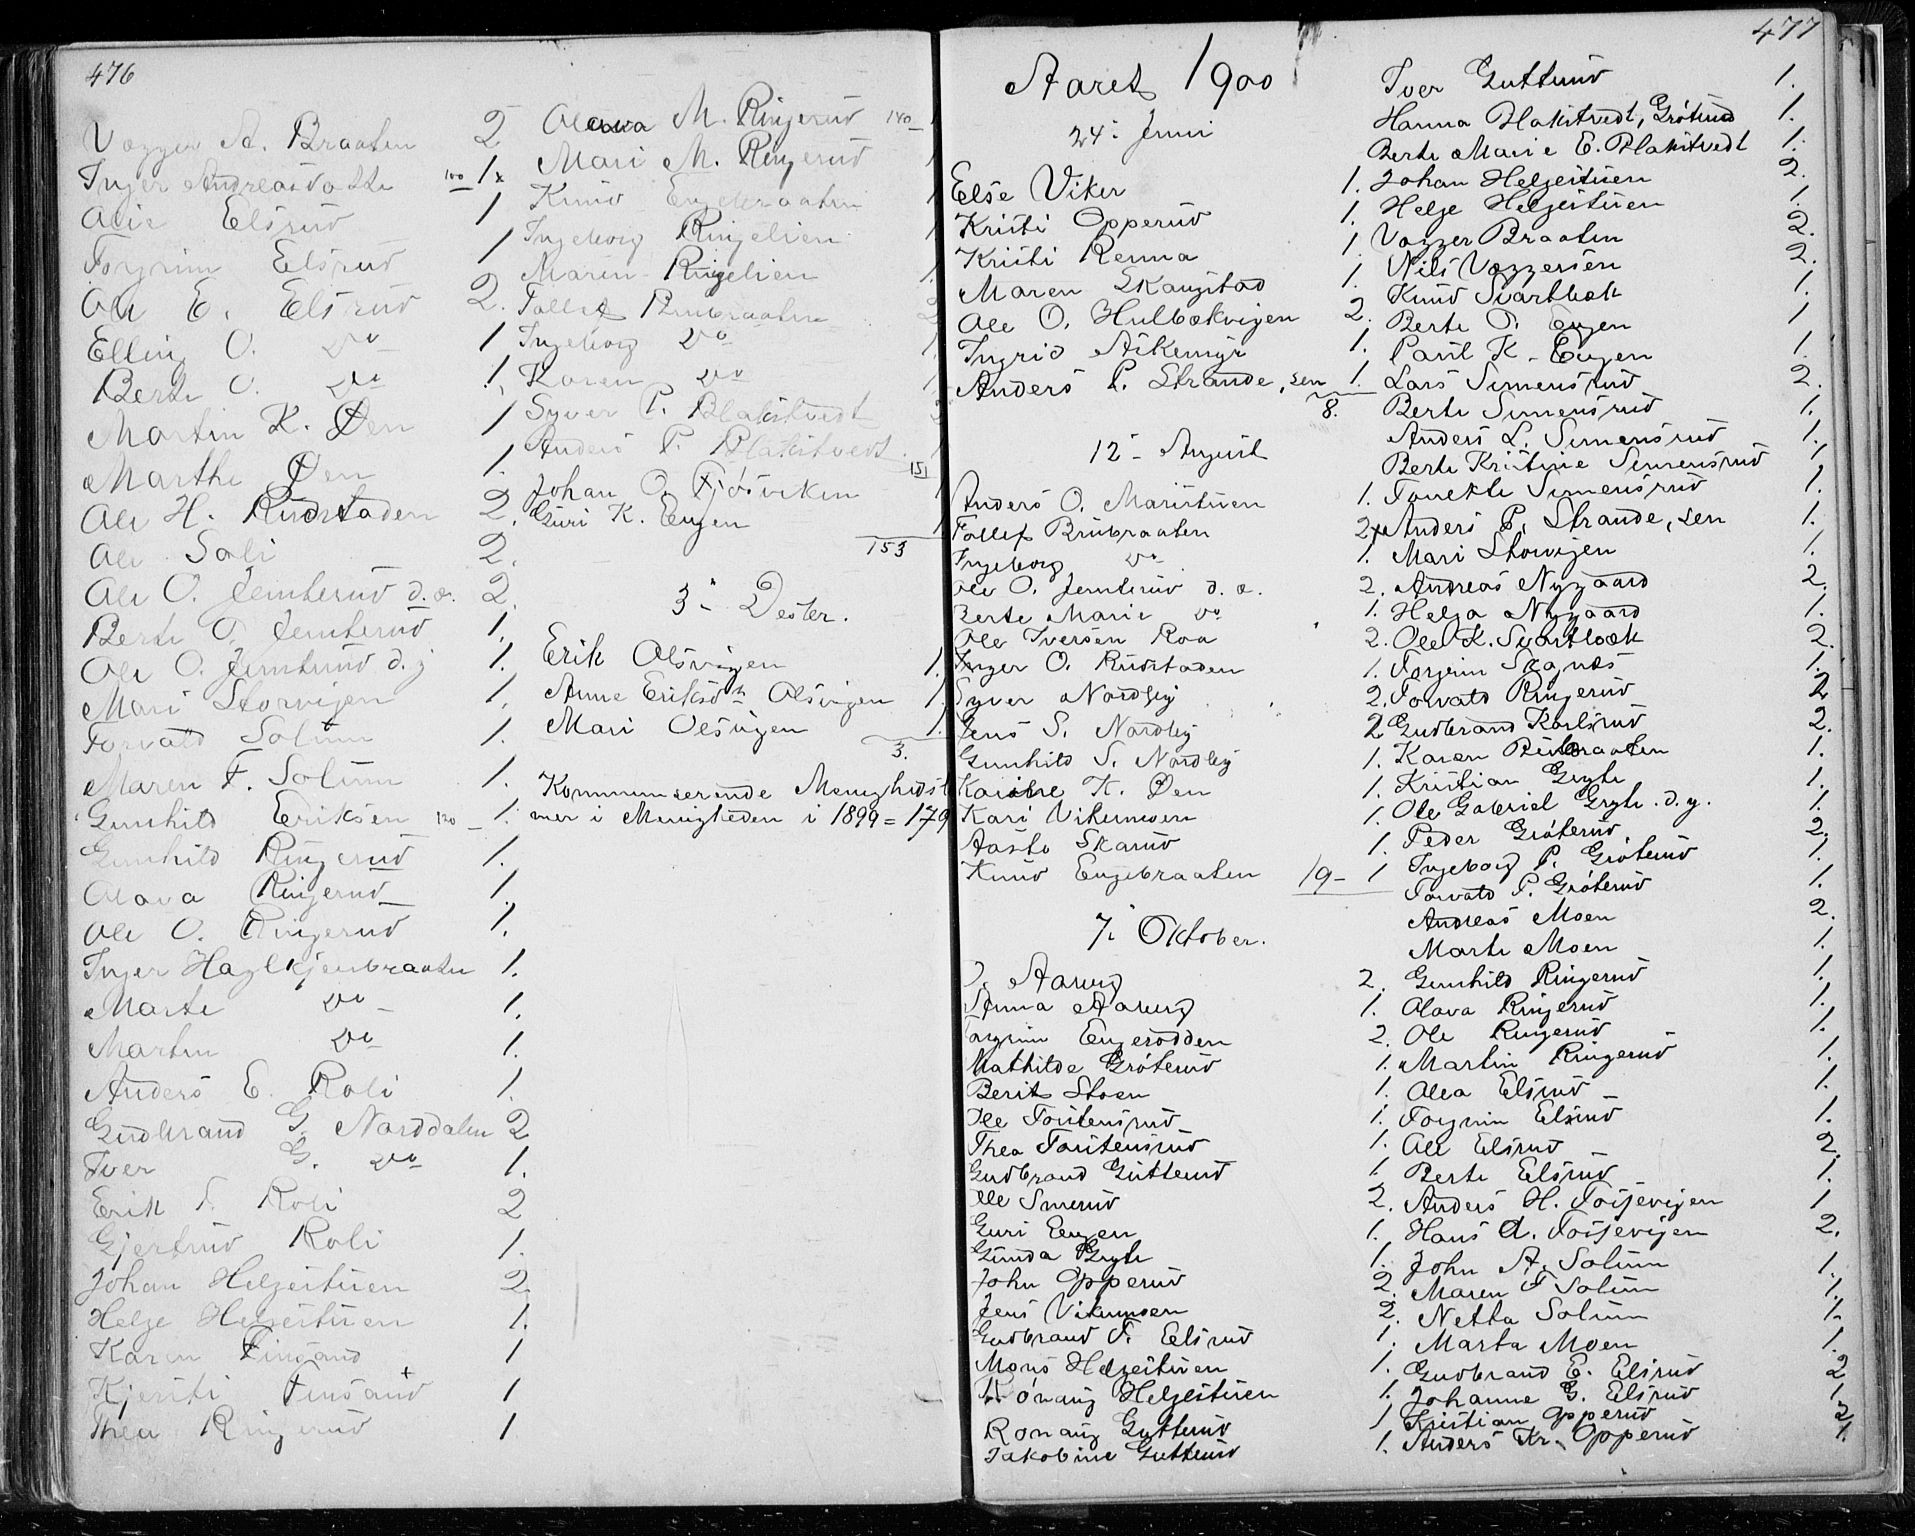 476
Vegger A. Braaten 2
Inger Andreasdatter 100 1x
Olia Elsrud 1
Torgrim Elsrud 1
Ole E. Elsrud 2.
Elling O. do 1
Berte O. do 1.
Martin K. Øen 1
Marthe Øen 1.
Ole H. Rudstaden 2.
Ole Soli 2.
Ole O. Jemterud d.æ. 2.
Berte T. Jemterud 1.
Ole O. Jemterud d.y 1.
Mari Storvigen 1.
Torvald Solum 1.
Maren T. Solum 1.
Gunhild Eriksen 120 1.
Gunhild Ringerud 1.
Olava Ringerud 1.
Ole O. Ringerud 1.
Inger Haglkjernbraaten 1.
Marte do 1.
Martin do 1.
Anders E. Roli 1.
Gudbrand G. Norddalen 2
Iver G. do 1.
Erik S. Roli 2
Gjertrud Roli 1.
Johan Helgeituen 2.
Helge Helgeituen 1.
Karen Finsand 1
Kjersti Finsand 1
Thea Ringerud 1
Olava M. Ringerud 140 1
Mari M. Ringerud 1
Knud Engebraaten 1
Ingeborg Ringelien 1
Maren Ringelien 1.
Tollef Brubraaten 2
Ingeborg do 1.
Karen do 1.
Syver P. Blakstvedt
Anders P. Blakstvedt 1
Johan O. Fjøsviken 151 1
Guri K. Engen 1
153
3- Dester.
Erik Olsvigen 1.
Anne Eriksdtr Olsvigen 1.
Mari Olsvigen 1.
3.
Kommunserende Menighedsl
mer i Menigheden i 1899 = 179
477
Aaret 1900
24- Juni
Else Viker 1.
Kristi Opperud 1.
Kristi Renna 1.
Maren Skaugstad 1.
Ole O. Hulbækvigen 2.
Ingrid Askemyr 1.
Anders P. Strande, sen 1.
8.
12- August
Anders O. Maristuen 1.
Tollef Brubraaten 2x
Ingeborg do 1.
Ole O. Jemterud d.æ. 2.
Berte Marie do 1.
Ole Iversen Roa 2.
Inger O. Rudstaden 1.
Syver Nordby 2.
Jens S. Nordby 2
Gunhild S. Nordby 1.
Kaisine K. Øen 1.
Kari Vikumoen 1.
Aaste Skarud 1.
Knud Engebraaten 19- 1
7. Oktober.
O. Aaberg 2.
Anna Aaberg 1.
Torgrim Engerodden 2.
Mathilde Grøterud 1.
Berit Stoen 1.
Ole Tostensrud 1.
Thea Tostensrud 1.
Gudbrand Gutterud 1
Ole Smerud 2.
Guri Engen 1.
Gunda Gryte 1.
John Opperud 2.
Jens Vikumoen 2.
Gudbrand T. Elsrud 1.
Mons Helgeituen 1.
Rønaug Helgeituen 1.
Ronaug Gutterud 1
Jakobine Gutterud 1.
Iver Gutterud 1.
Hanna Blakstvedt, Grøterud 1.
Berte Marie E. Blakstvedt 1.
Johan Helgeituen 2.
Helge Helgeituen 1.
Vegger Braaten 2.
Nils Veggersen 2.
Knud Svartbæk 1.
Berte P. Engen 1
Paul K. Engen 1.
Lars Simensrud 2.
Berte Simensrud 1.
Anders L. Simensrud 1.
Berte Kristine Simensrud 1
Tonette Simensrud 1.
Anders P. Strande, sen 1.
Mari Storvigen 1.
Andreas Nygaard 2.
Helga Nygaard 1.
Ole K. Svartbæk 2.
Torgrim Sognæs 1.
Torvald Ringerud 2
Gudbrand Karlsrud 2.
Karen Brubraaten 1.
Kristian Gryte 1.
Ole Gabriel Gryte d.y. 1.
Peder Grøterud 2.
Ingeborg P. Grøterud 1.
Torvald P. Grøterud 1.
Andreas Moen 2.
Marte Moen 1.
Gunhild Ringerud 1.
Olava Ringerud 1.
Ole Ringerud 1.
Martin Ringerud 1.
Olea Elsrud 1.
Torgrim Elsrud 1.
Ole Elsrud 2.
Berte Elsrud 1.
Anders H. Fossevigen 1
Hans A. Fossevigen 2.
John A. Solum 1.
Maren T Solum 1.
Netta Solum 1.
Marta Moen 1.
Gudbrand E. Elsrud 2
Johanne G. Elsrud 1.
Kristian Opperud 2.
Anders Kr. Opperud 1.